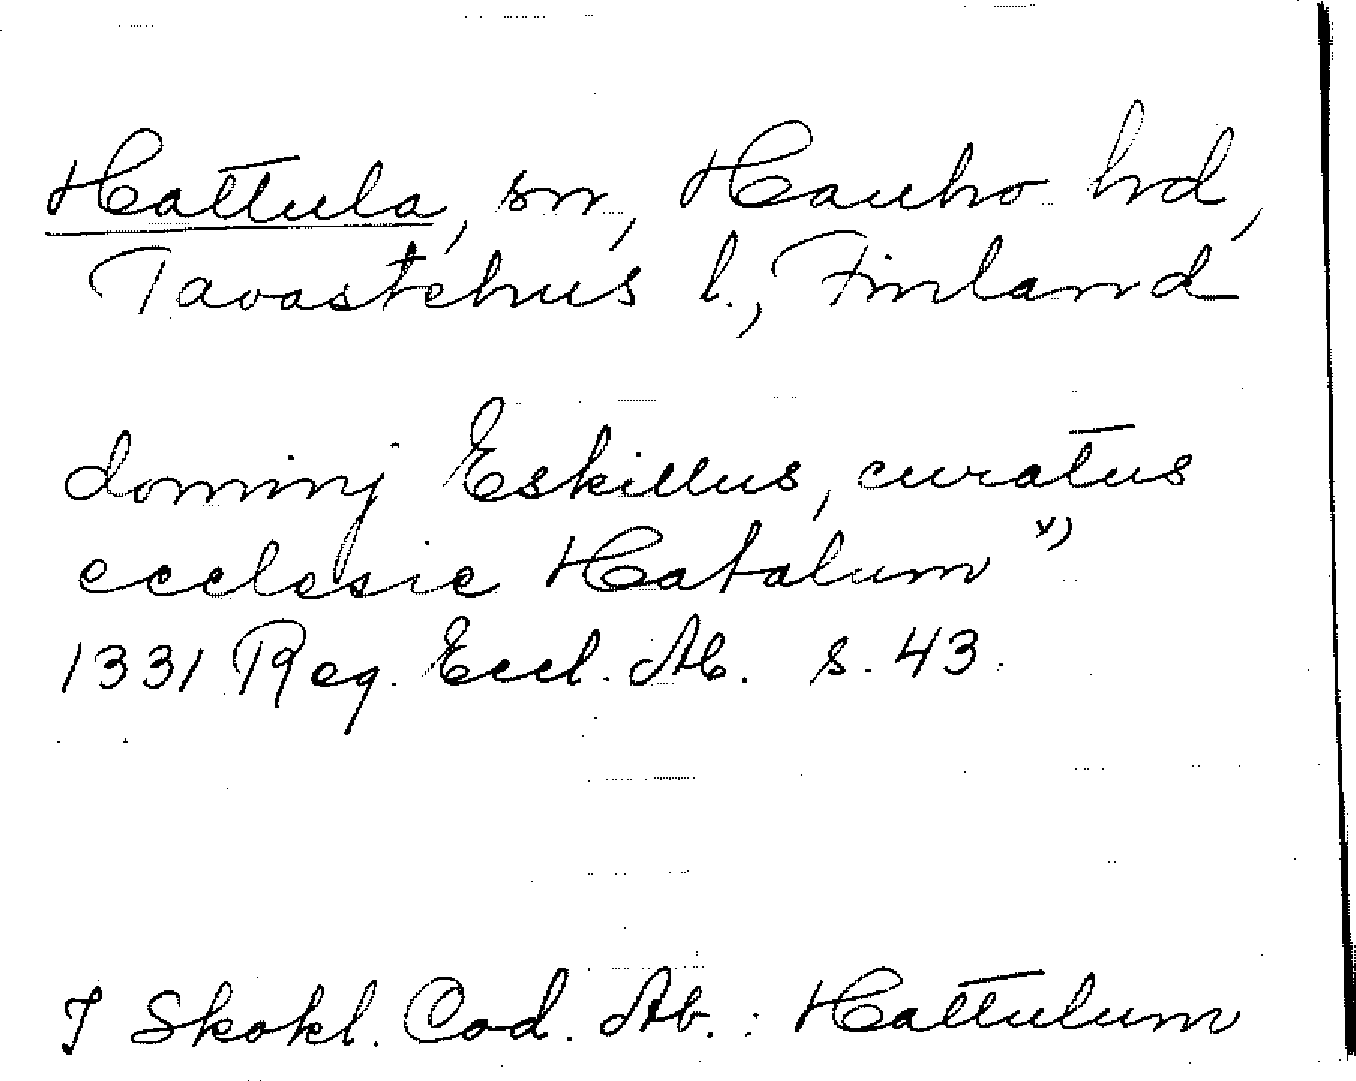 Hattula, sn, Hauho hd,
Tavastehus l., Finland
dominj Eskillus, curatus
ecclesie Hatalum x)
1331 Reg. Eccl. Ab. s. 43.
I Skokl. Cod. Ab.: Hattulum